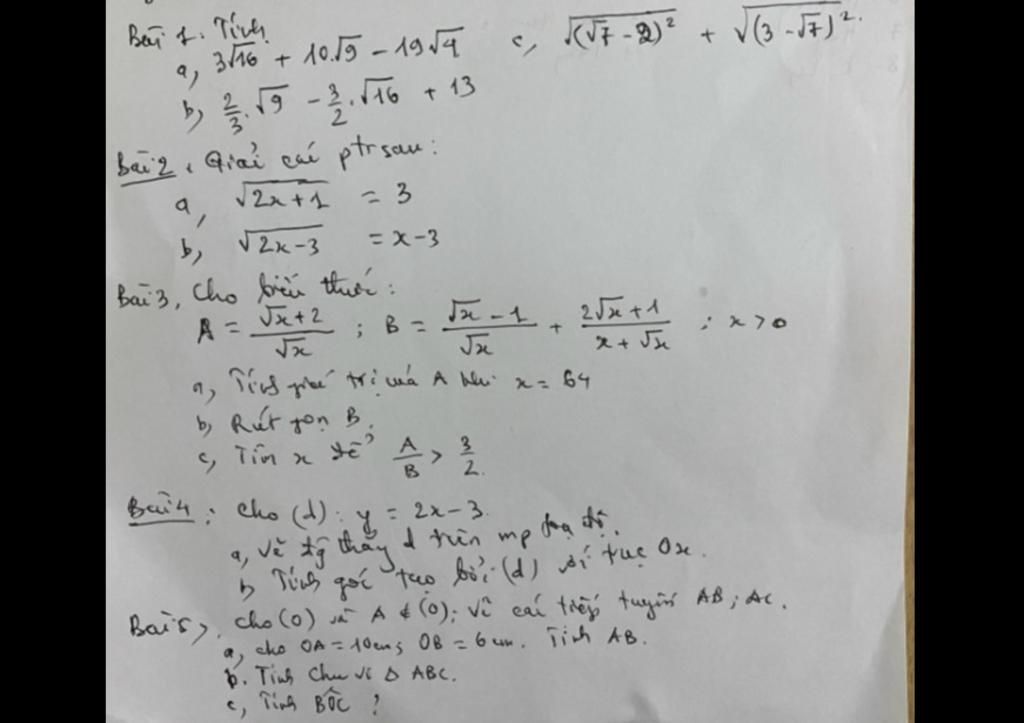 Bài 1. Tính.
a, 3√16 + 10.√9 − 19√4 c, √(√7 − 2)² + √(3 − √7)².
b, 2/3.√9 − 3/2.√16 + 13
Bài 2, Giải các ptr sau:
a, √2x+1 = 3
b, √2x−3 = x−3
Bài 3, Cho biểu thức:
A = √x+2/√x ; B = √x − 1/√x + 2√x+1/x+√x ; x > 0
a, Tính giá trị của A khi x = 64
b, Rút gọn B.
c, Tìm x để A/B > 3/2.
Bài 4: Cho (d): y = 2x−3.
a, Vẽ đg thẳng d trên mp tọa độ.
b, Tính góc tạo bởi (d) với trục Ox.
Bài 5, cho (O) và A ∉ (O); Vẽ các tiếp tuyến AB; AC.
a, cho OA = 10cm; OB = 6cm. Tính AB.
b. Tính Chu vi Δ ABC.
c, Tính BÔC ?